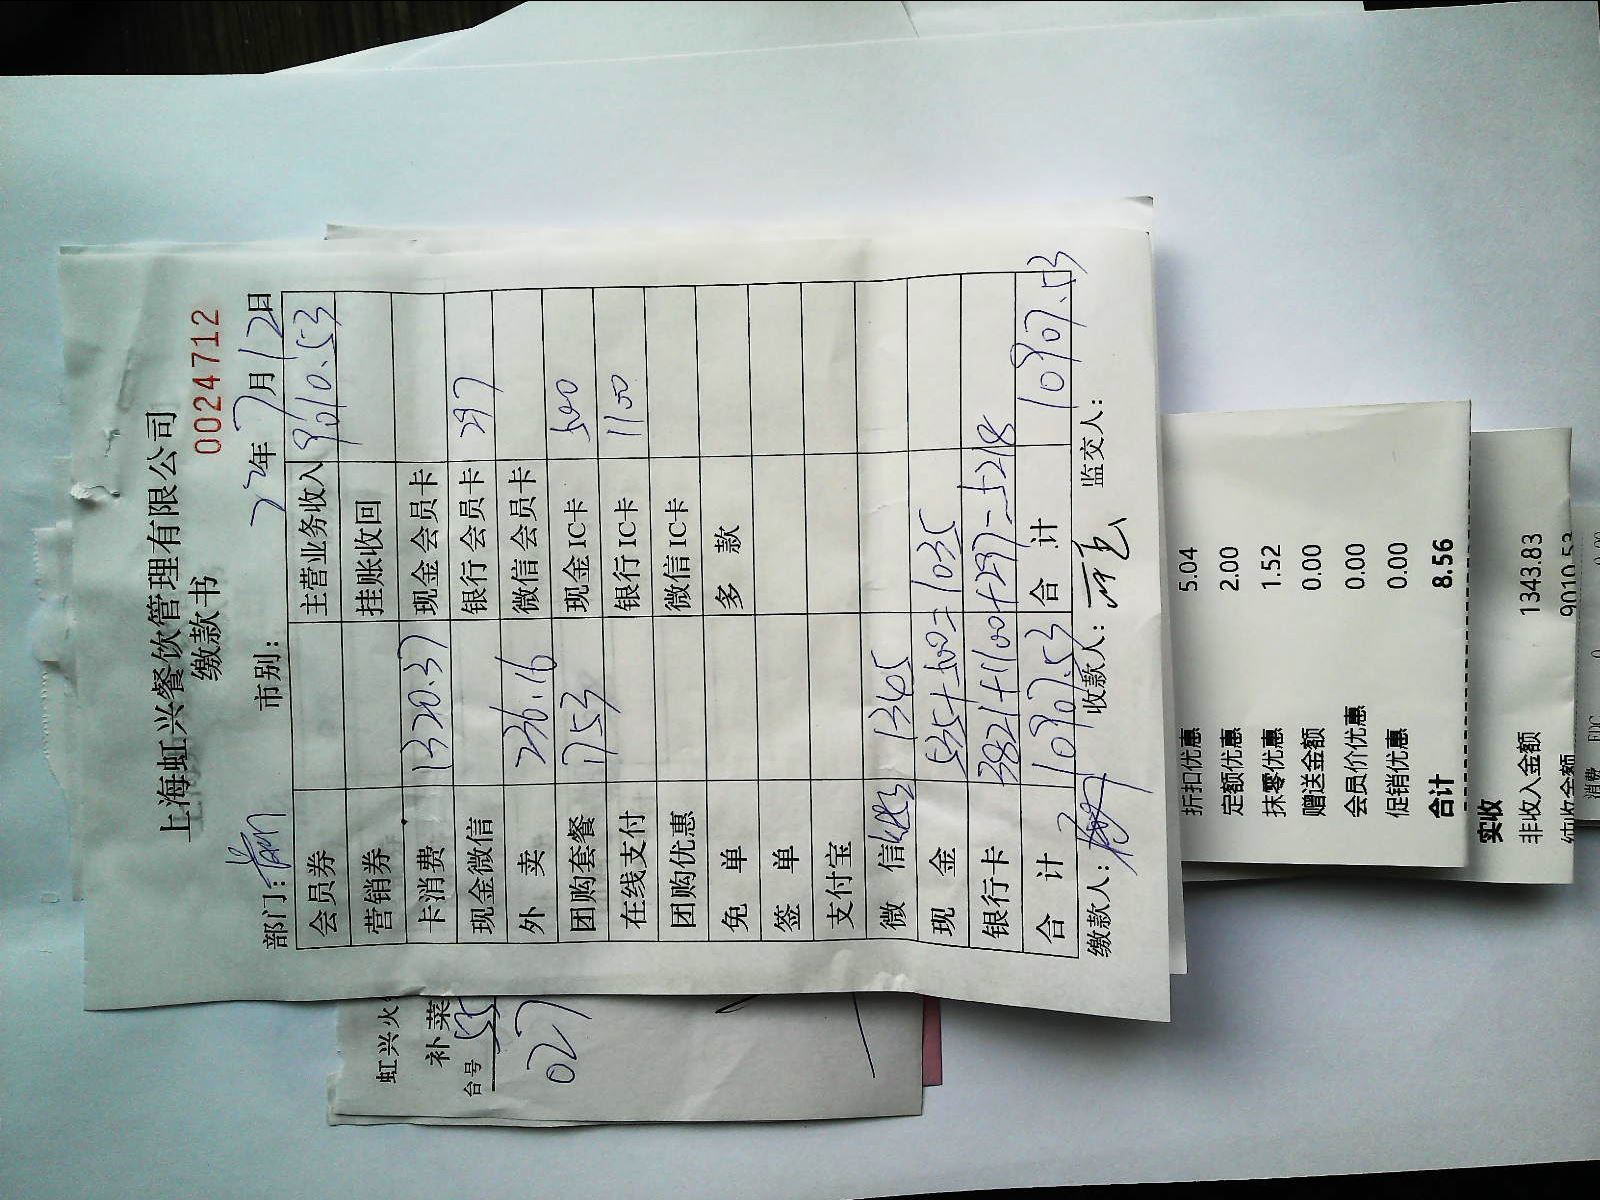 上海虹兴餐饮管理有限公司
缴款书
0024712
部门: 市别: 22年7月12日
会员券 主营业务收入 9010.53
营销券 挂账收回
卡消费 1320.37 现金会员卡
现金微信 银行会员卡 297
外 卖 236.16 微信会员卡
团购套餐 1753 现金IC卡 500
在线支付 银行IC卡 1100
团购优惠 微信IC卡
免 单 多 款
签 单
支付宝
微 信 1345
现 金 535+500=1035
银行卡 3821+1100+297=5218
合 计 10907.53 合 计 10907.53
缴款人: 收款人: 监交人:
虹兴火
补菜
台号 55
027
折扣优惠 5.04
定额优惠 2.00
抹零优惠 1.52
赠送金额 0.00
会员价优惠 0.00
促销优惠 0.00
合计 8.56
实收
非收入金额 1343.83
9010.53
消费